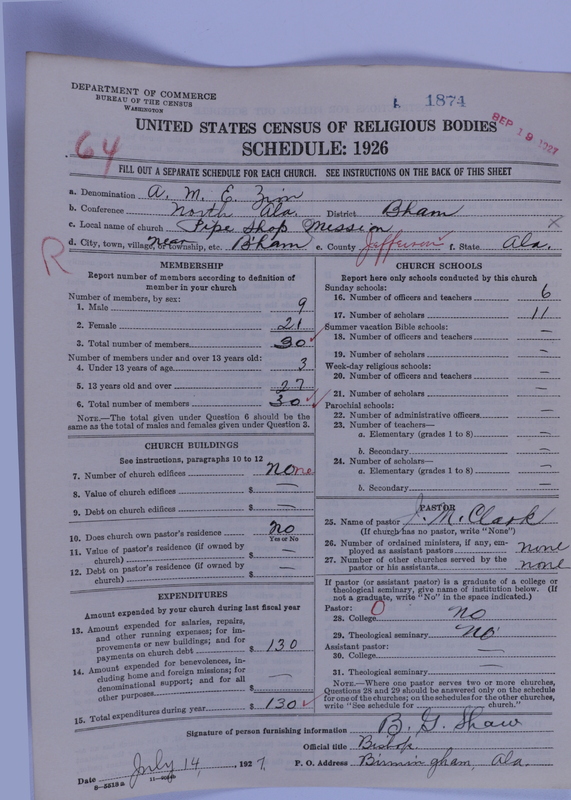 DEPARTMENT OF COMMERCE
BUREAU OF THE CENSUS
WASHINGTON
1874
SEP 19 1927
64
UNITED STATES CENSUS OF RELIGIOUS BODIES
SCHEDULE: 1926
FILL OUT A SEPARATE SCHEDULE FOR EACH CHURCH. SEE INSTRUCTIONS ON THE BACK OF THIS SHEET
a. Denomination A. M. E. Zion
b. Conference North Ala. District Bham
c. Local name of church Pipe Shop Mission X
d. City, town, village, or township, etc. near B'ham e. County Jefferson f. State Ala.
R
MEMBERSHIP
Report number of members according to definition of
member in your church
Number of members, by sex:
1. Male 9
2. Female 21
3. Total number of members 30
Number of members under and over 13 years old:
4. Under 13 years of age 3
5. 13 years old and over 27
6. Total number of members 30
NOTE.—The total given under Question 6 should be the
same as the total of males and females given under Question 3.
CHURCH BUILDINGS
See instructions, paragraphs 10 to 12
7. Number of church edifices None
8. Value of church edifices $ —
9. Debt on church edifices $ —
10. Does church own pastor's residence? No
Yes or No
11. Value of pastor's residence (if owned by
church) $ —
12. Debt on pastor's residence (if owned by
church) $ —
EXPENDITURES
Amount expended by your church during last fiscal year
13. Amount expended for salaries, repairs,
and other running expenses; for im-
provements or new buildings; and for
payments on church debt $ 130
14. Amount expended for benevolences, in-
cluding home and foreign missions; for
denominational support; and for all
other purposes $ —
15. Total expenditures during year $ 130
CHURCH SCHOOLS
Report here only schools conducted by this church
Sunday schools:
16. Number of officers and teachers 6
17. Number of scholars 11
Summer vacation Bible schools:
18. Number of officers and teachers —
19. Number of scholars —
Week-day religious schools:
20. Number of officers and teachers —
21. Number of scholars —
Parochial schools:
22. Number of administrative officers —
23. Number of teachers—
a. Elementary (grades 1 to 8) —
b. Secondary —
24. Number of scholars—
a. Elementary (grades 1 to 8) —
b. Secondary —
PASTOR
25. Name of pastor J. M. Clark
(If church has no pastor, write "None")
26. Number of ordained ministers, if any, em-
ployed as assistant pastors none
27. Number of other churches served by the
pastor or his assistants none
If pastor (or assistant pastor) is a graduate of a college or
theological seminary, give name of institution below. (If
not a graduate, write "No" in the space indicated.)
Pastor: 0
28. College No
29. Theological seminary No
Assistant pastor:
30. College —
31. Theological seminary —
NOTE.—Where one pastor serves two or more churches,
Questions 28 and 29 should be answered only on the schedule
for one of the churches; on the schedules for the other churches,
write "See schedule for church."
Signature of person furnishing information B. G. Shaw
Official title Bishop.
Date July 14, 1927. P. O. Address Birmingham, Ala.